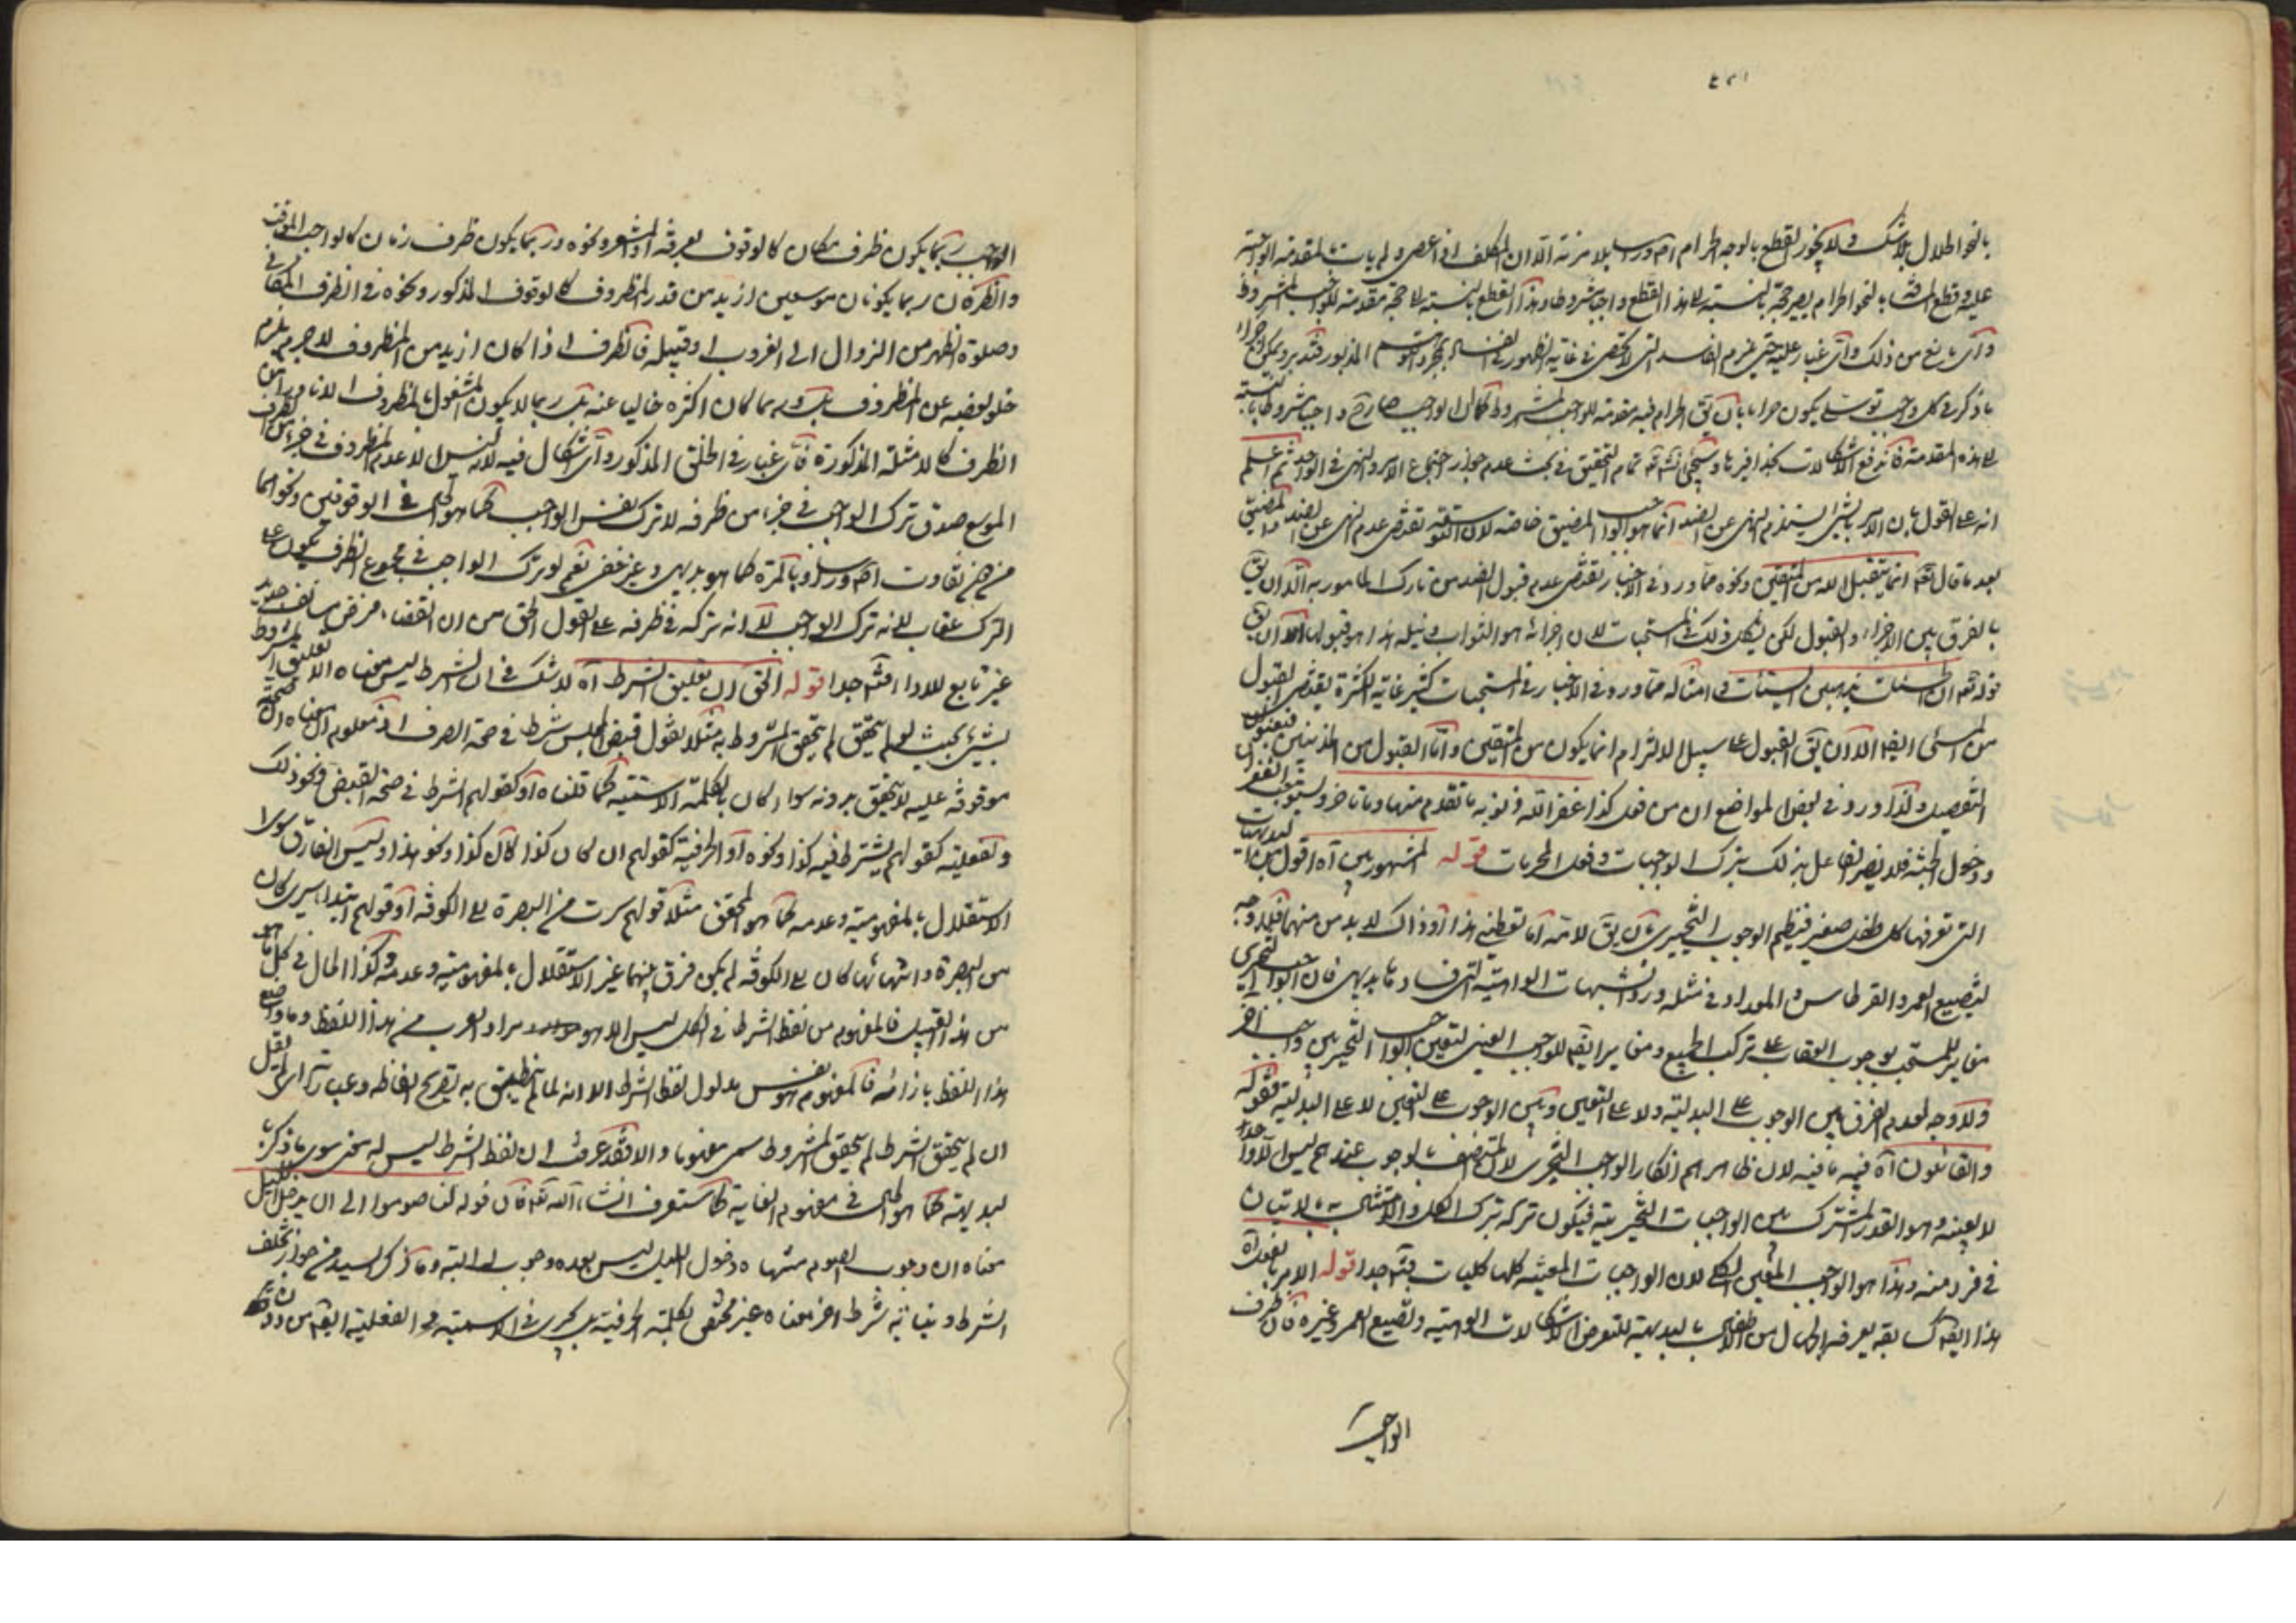 بالنحو الحلال بلا شك ولا يخور القطع بالوجه الحرام اصلا ورسا بلا مزية الا ان المكلف اذا عصى ولم يات بالمقدمة الواجبة
عليه وقطع المسافة بالنحو الحرام يصير حجة بالنسبة الى هذا القطع واجبا مشروطا وهذا القطع بالنسبة الى حجة مقدمة للواجب المشروط
واى مانع من ذلك واى غبار عليه حتى يلزم المفاسد التى لا تحصى فى غاية الظهور فى الفساد بمجرد التوهم المذبور فتدبر ويمكن اجراء
ما ذكر فى كل واجب توسلى يكون حراما بان يق الحرام فيه مقدمة للواجب المشروط فكان الواجب صار واجبا مشروطا بالنسبة
الى هذه المقدمة فاندفع الاشكالات بحذافيرها وسيجئ انشاء الله تمام التحقيق فى بحث عدم جواز اجتماع الامر والنهى فى الواحد ثم اعلم
انه على القول بان الامر بالشئ يستلزم النهى عن الضد انما هو الواجب المضيق خاصة لان التوسعة تقتضى عدم النهى عن الضد المضيق
بعد ما قال تعالى انما يتقبل الله من المتقين ونحوه مما ورد فى الاخبار تقتضى عدم قبول الضد من تارك المامور به الا ان يق
بالفرق بين الاجزاء والقبول لكن يشكل ذلك فى المستحبات لان اجزائه هو الثواب ونيله هذا هو قبولها الا ان يق
قوله تعالى ان الحسنات يذهبن السيئات وامثاله مما ورد فى الاخبار فى المستحبات كثير غاية الكثرة يقتضى القبول
من المسئ ايضا الا ان يق القبول على سبيل الالتزام انما يكون من المتقين واما القبول من المذنبين فبعنوان
التفضل ولذا ورد فى بعض المواضع ان من فعل كذا غفر الله ذنوبه ما تقدم منها وما تاخر ويستوجب الغفران
ودخول الجنة فلا يضر الفاعل بذلك بترك الواجبات وفعل المحرمات قوله المشهور بين آه اقول من البديهيات
التى تعرفها كل طفل صغير فيظلم الوجوب التخييرى بان يق لامه اما تعطينى هذا او ذاك لا بد من منهما فلا وجه
لتضييع العمر والقرطاس والمداد فى مثله ورد الشبهات الواهية التى فسادها بديهى فان الواجب التخييرى
مغاير للمستحب بوجوب العقاب على ترك الجميع ومغاير ايضا للواجب العينى لتعيين الواجب التخييرى بين واحد واخر
ولا وجه لعدم الفرق بين الوجوب على البدلية ولا على التعيين وبين الوجوب على التعيين لا على البدلية فقوله
والقائلون آه فيه ما فيه لان ظاهرهم انكار الواجب التخييرى لان المتصف بالوجوب عندهم ليس الا واحدا
لا بعينه وهو القدر المشترك بين الواجبات التخييرية فيكون تركه بترك الكل والامتثال به بالاتيان
فى فرد منه وهذا هو الواجب المعين الكلى لان الواجبات المعينة كلها كليات فتامل جدا قوله الامر بالفعل آه
هذا ايضا كسابقه يعرفه الجهال من الاطفال بالبديهة للتعرض الاشكالات الواهية وتضييع العمر وغيره فان ظرف
الواجب
الواجب ربما يكون ظرف مكان كالوقوف بعرفة او المشعر ونحوه وربما يكون ظرف زمان كالواجب الموقت
والظرفان ربما يكونان موسعين ازيد من قدر المظروف كالوقوف المذكور ونحوه فى الظرف المكانى
وصلوة الظهر من الزوال الى الغروب او قبيله فالظرف اذا كان ازيد من المظروف لا جرم يلزم
خلو بعضه عن المظروف بل وربما كان اكثره خاليا عنه بل ربما لا يكون المشغول بالمظروف الا نادرا من
الظرف كالامثلة المذكورة فاى غبار فى الخلق المذكور واى اشكال فيه لانه ليس الا عدم المظروف فى جزء من الظرف
الموسع صدق ترك الواجب فى جزء من ظرفه لا ترك نفس الواجب كما هو الحال فى الوقوفين ونحوهما
من غير تفاوت اصلا وراسا وبالمرة كما هو بديهى وغير خفى نعم لو ترك الواجب فى مجموع الظرف يكون على
الترك عقاب لانه ترك الواجب لا انه تركه فى ظرفه على القول الحق من ان القضاء فرض مستانف جديد
غير تابع للاداء فتامل جدا قوله الحق ان تعليق الشرط آه لا شك فى ان الشرط ليس معناه الا تعليق المشروط
بشئ بحيث لو لم يتحقق لم يتحقق المشروط به مثلا نقول قبض المجلس شرط فى صحة الصرف اذ معلوم ان معناه ان الصحة
موقوفة عليه لا يتحقق بدونه سواء كان بالكلمة الاسمية كما قلناه او كقولهم الشرط فى صحة القبض ونحو ذلك
والفعلية كقولهم يشترط فيه كذا ونحوه او الحرفية كقولهم ان كان كذا كان كذا ونحو هذا وليس الفارق سوى
الاستقلال بالمفهومية وعدمه كما هو المحقق مثلا قولهم سرت من البصرة الى الكوفة او قولهم ابتداء سيرى كان
من البصرة وانتهائها كان الى الكوفة لم يكن فرق بينهما غير الاستقلال بالمفهومية وعدمه وكذا الحال فى كل ما هو
من هذا القبيل فالمفهوم من لفظ الشرط فى الكل ليس الا هو مراد العرب من هذا اللفظ وما وضع
هذا اللفظ بازائه فالمفهوم هو نفس مدلول لفظ الشرط الا انه لما لم ينطبق به بصريح الفاظه وعبارته اى لم يقل
ان لم يتحقق الشرط لم يتحقق المشروط سمى مفهوما والا فقد عرفت ان لفظ الشرط ليس له معنى سوى ما ذكر
لبديهة كما هو الحال فى مفهوم الغاية كما ستعرف انشاء الله تعالى فان قوله تعالى صوموا الى ان يدخل الليل
معناه ان وجوب الصوم منتهاه دخول الليل ليس بعده وجوب البتة وما ذكر السيد من جواز تخلف
الشرط ونيابة شرط اخر معناه غير مختص بكلمة الحرفية بل يجرى فى الاسمية والفعلية ايضا من دون